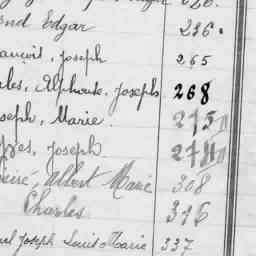 Edgar 236.
Joseph 265
Alphonse, Joseph 268
Joseph, Marie. 275
Joseph 278
Albert Marie 308
Charles 316
Joseph Louis Marie 337